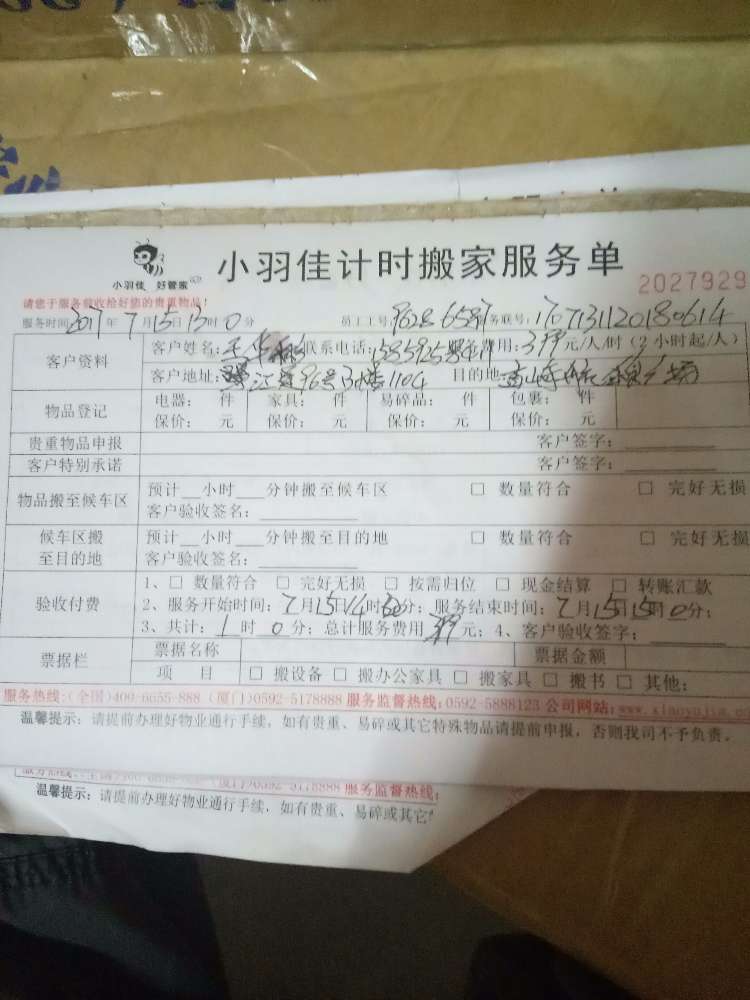 小羽佳 好管家
小羽佳计时搬家服务单
2027929
请您于服务前收拾好您的贵重物品!
服务时间 2017 年 7 月 15 日 13 时 0 分 员工工号: 9628 658 服务联号: 1707131120180614
客户资料 客户姓名: 联系电话: 费用: 399 元/人/时 (2小时起/人)
客户地址: 江 96号 1104 目的地:
物品登记 电器: 件 家具: 件 易碎品: 件 包裹: 件
保价: 元 保价: 元 保价: 元 保价: 元
贵重物品申报 客户签字:
客户特别承诺 客户签字:
物品搬至候车区 预计__小时___分钟搬至候车区 □ 数量符合 □ 完好无损
客户验收签名:
候车区搬至目的地 预计__小时___分钟搬至目的地 □ 数量符合 □ 完好无损
客户验收签名:
验收付费 1、□ 数量符合 □ 完好无损 □ 按需归位 □ 现金结算 □ 转账汇款
2、服务开始时间: 7 月 15 日 14 时 分; 服务结束时间: 7 月 15 日 15 时 0 分;
3、共计: 1 时 0 分; 总计服务费用 399 元; 4、客户验收签字:
票据栏 票据名称 票据金额
项 目 □ 搬设备 □ 搬办公家具 □ 搬家具 □ 搬书 □ 其他:
服务热线:(全国)400-6655-888 (厦门)0592-5178888 服务监督热线:0592-5888123 公司网站:www.xiaoyujia.co
温馨提示: 请提前办理好物业通行手续, 如有贵重、易碎或其它特殊物品请提前申报, 否则我司不予负责。
服务监督热线:
温馨提示: 请提前办理好物业通行手续, 如有贵重、易碎或其它